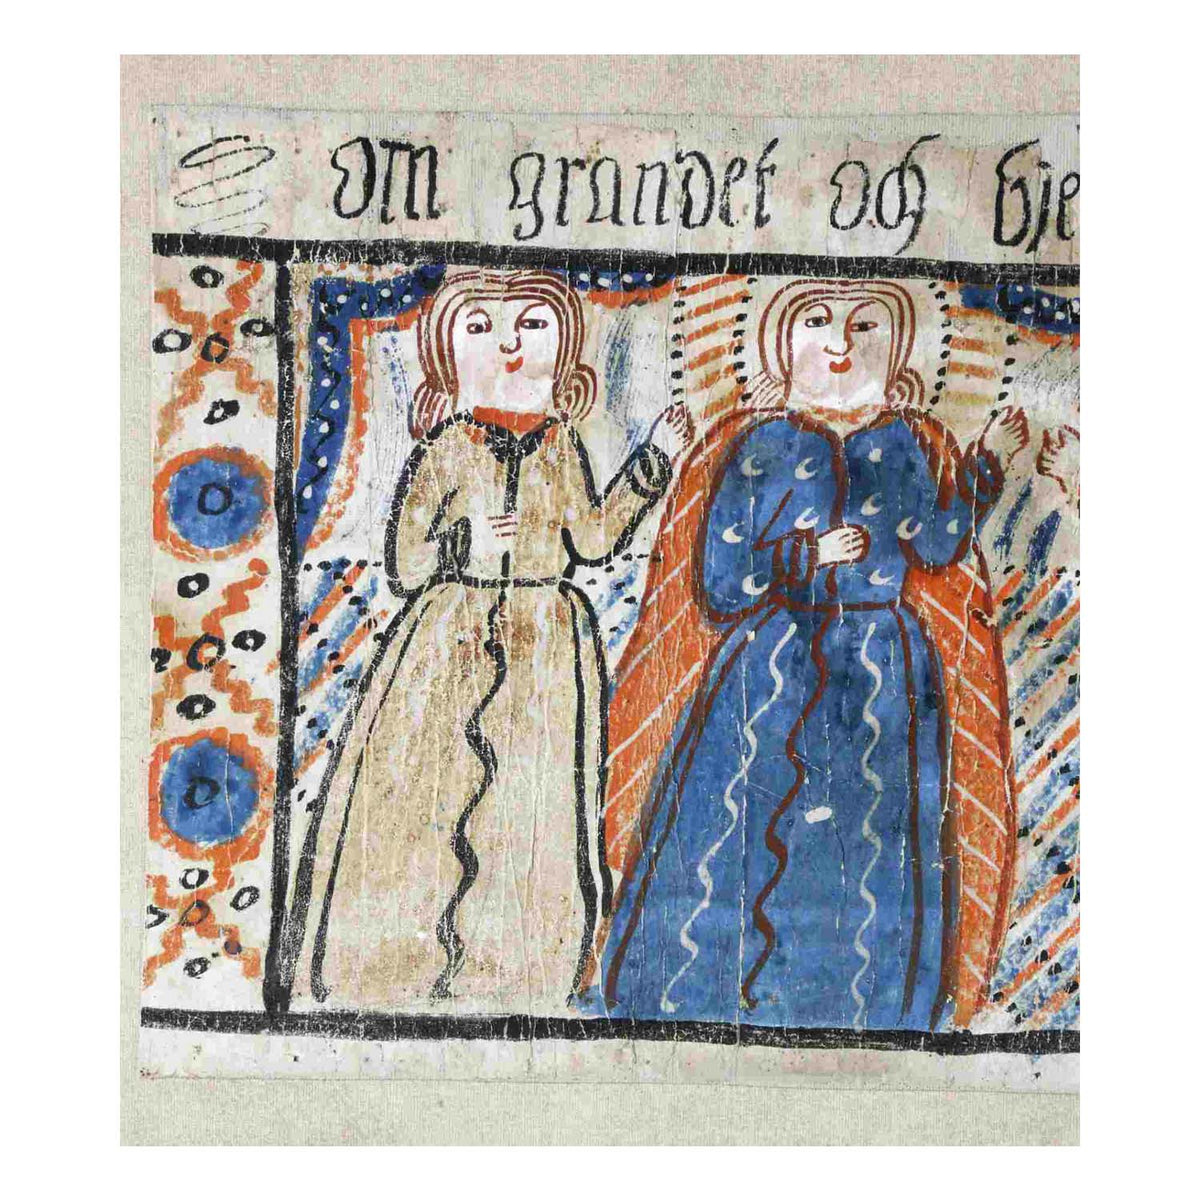 om grandet och bje